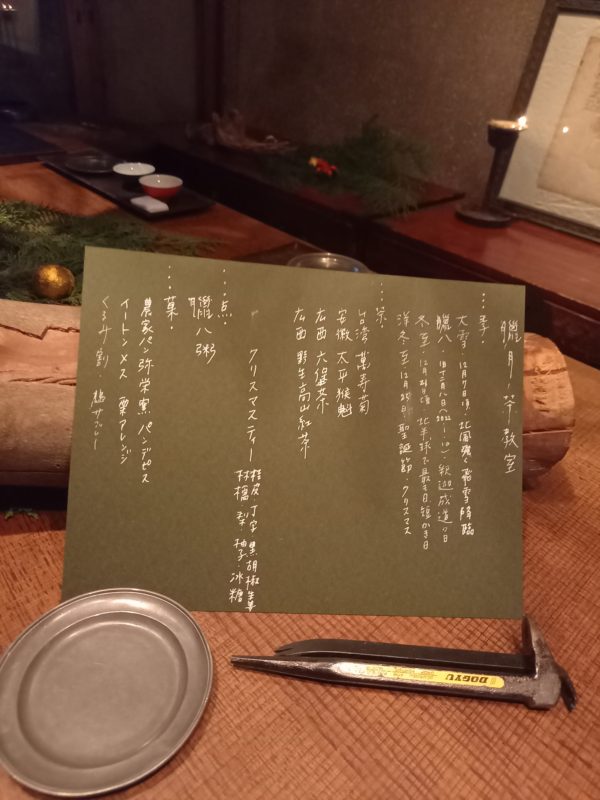 臘月ノ茶教室
…季・
大雪・12月7日頃・北風強く霜雪降臨
臘八・旧十二月八日(2022.1.10)・釈迦成道の日
冬至・12月21日頃・北半球で最も日短かき日
洋冬至 12月25日 聖誕節・クリスマス
…茶・
台湾 萬寿菊
安徽 太平猴魁
広西 六堡茶
広西 野生高山紅茶
クリスマスティー 桂皮・丁字・黒胡椒・生姜
林檎・梨・柚子・冰糖
…点・
臘八粥
…菓・
農家パン弥栄窯 パンデピス
イートンメス 栗アレンジ
くるみ割
DOGYU